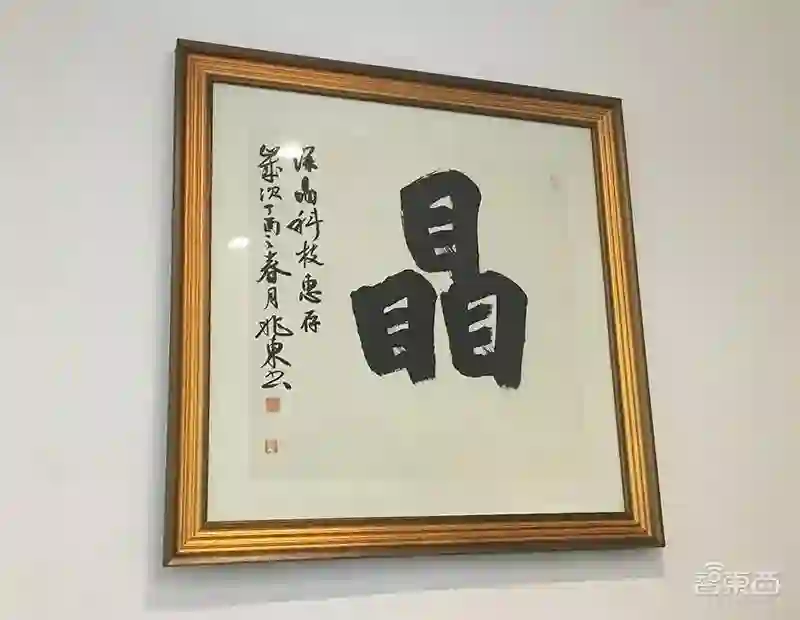 晶
深晶科技惠存
歲次丁酉之春月兆東书
智東西